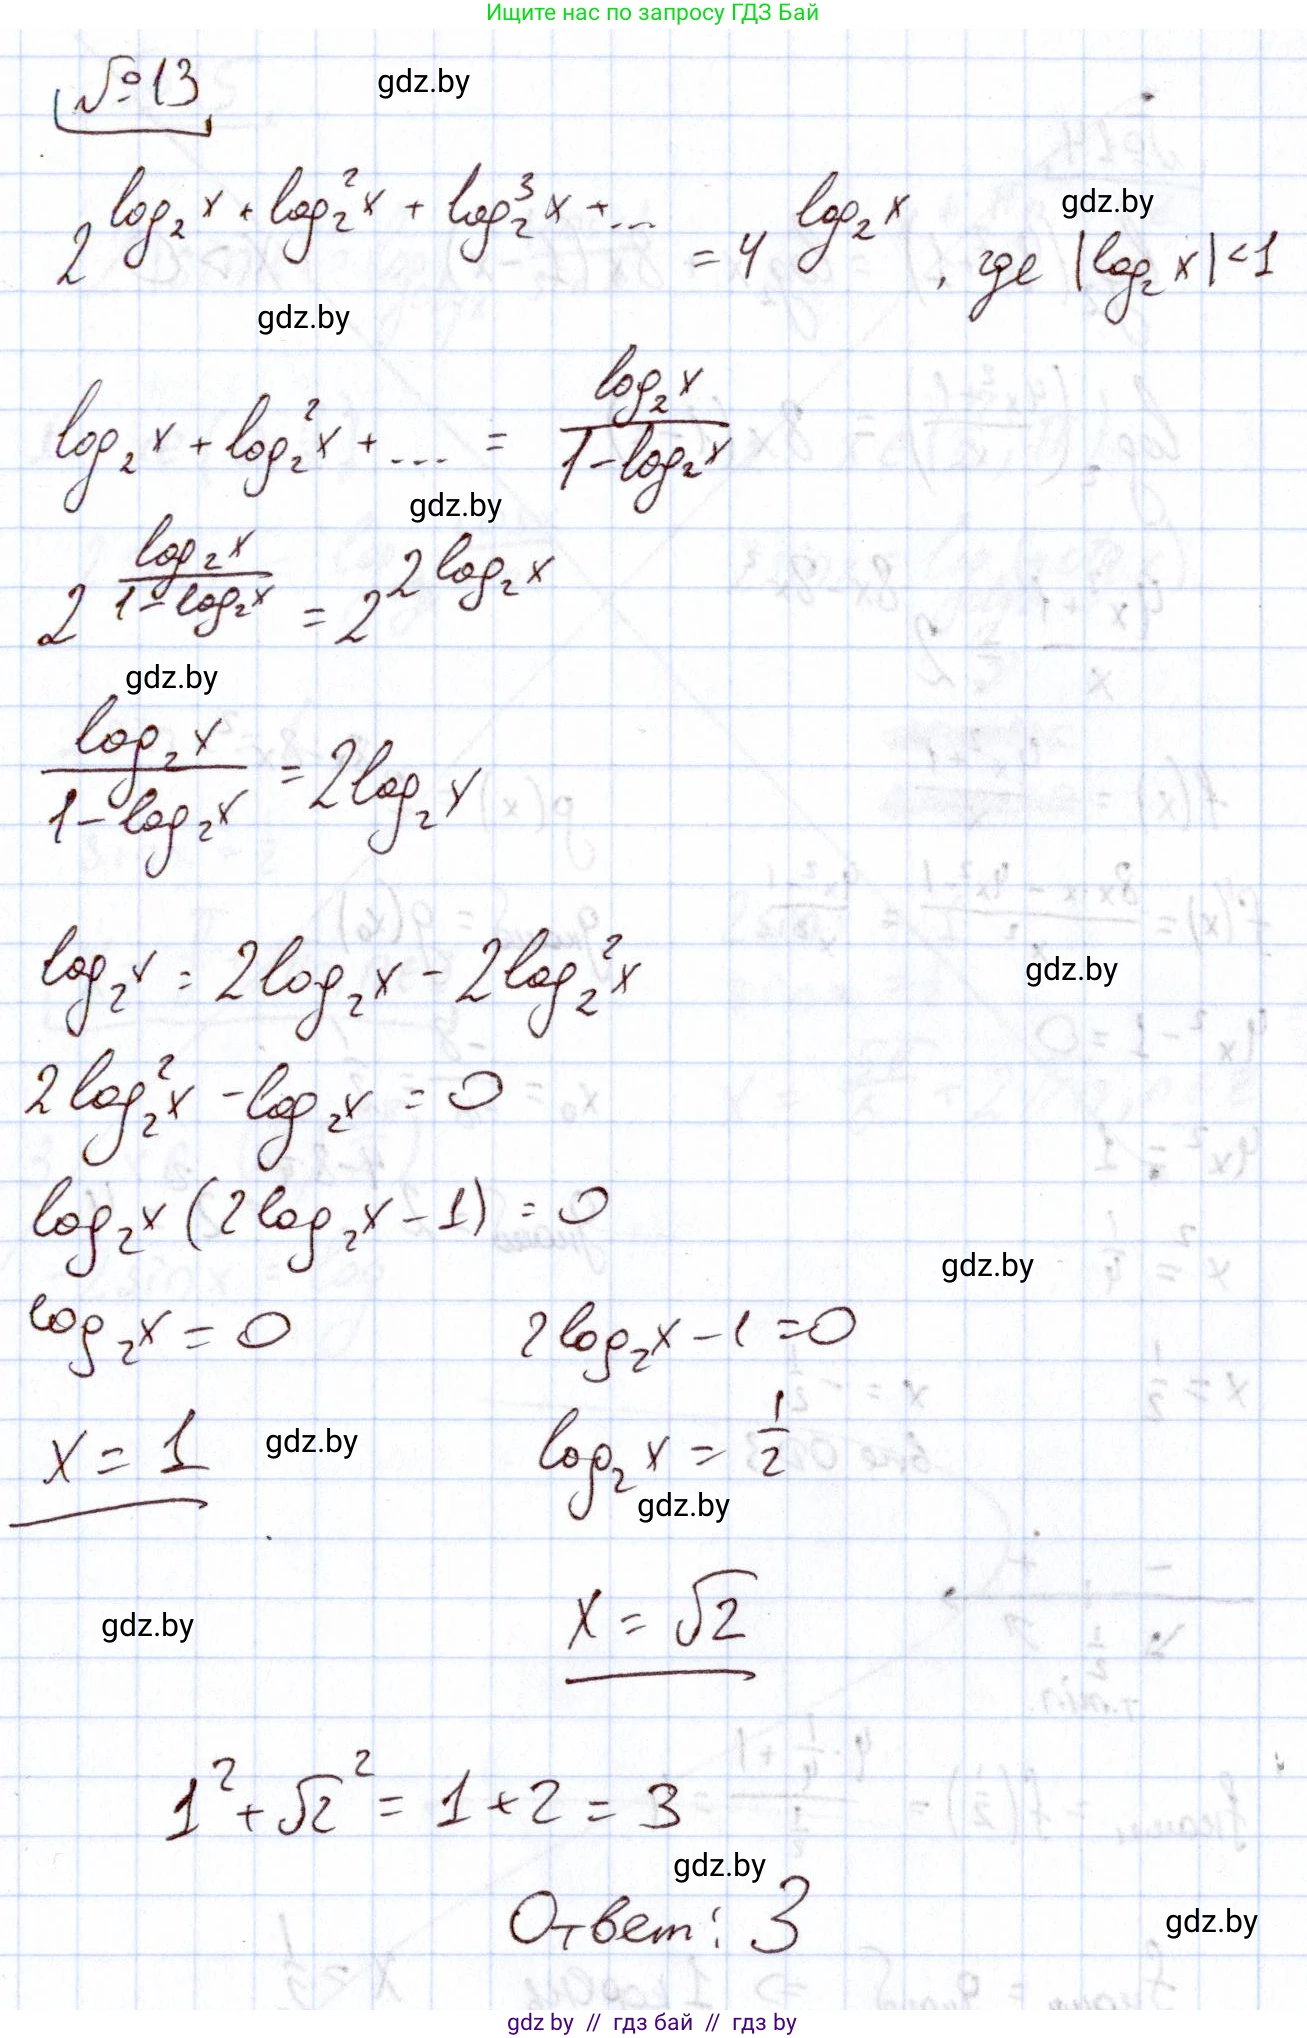 Ищите нас по запросу ГДЗ Бай
№13
gdz.by
2^(log₂x + log₂²x + log₂³x + ...) = 4^(log₂x), где |log₂x| < 1
gdz.by
gdz.by
log₂x + log₂²x + ... = log₂x / (1 - log₂x)
gdz.by
2^(log₂x / (1 - log₂x)) = 2^(2log₂x)
gdz.by
log₂x / (1 - log₂x) = 2log₂x
log₂x = 2log₂x - 2log₂²x
gdz.by
2log₂²x - log₂x = 0
log₂x (2log₂x - 1) = 0
gdz.by
log₂x = 0 2log₂x - 1 = 0
x = 1 gdz.by log₂x = 1/2
gdz.by
x = √2
gdz.by
1² + √2² = 1 + 2 = 3
gdz.by
Ответ: 3
gdz.by
gdz by // гдз бай // гдз by